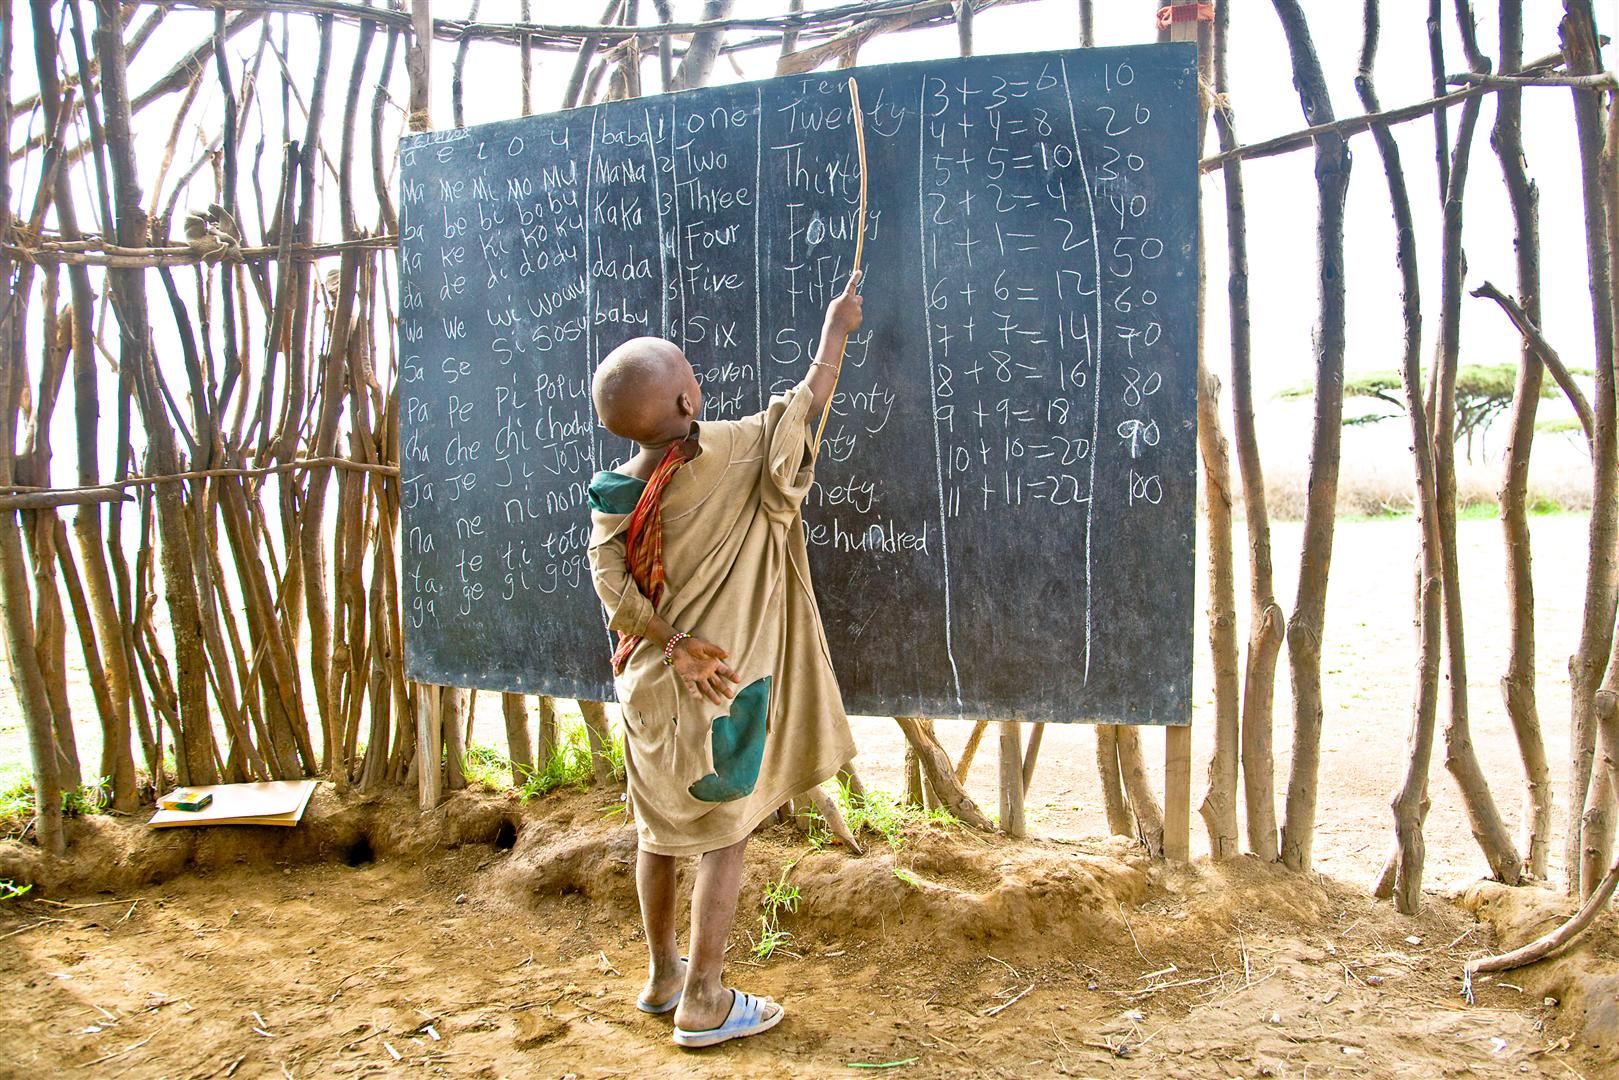 a e i o u
Ma Me Mi Mo Mu
ba be bi bo bu
ka ke ki ko ku
da de di do du
wa we wi wo wu
Sa Se Si So Su
Pa Pe Pi Po Pu
cha che chi cho chu
Ja Je Ji Jo Ju
na ne ni no nu
ta te ti to
ga ge gi go
baba
MaMa
KaKa
dada
babu
1 one
2 Two
3 Three
4 Four
5 Five
6 Six
Seven
Ten
Twenty
Thirty
Fourty
Fifty
Sixty
hundred
3 + 3 = 6
4 + 4 = 8
5 + 5 = 10
2 + 2 = 4
1 + 1 = 2
6 + 6 = 12
7 + 7 = 14
8 + 8 = 16
9 + 9 = 18
10 + 10 = 20
11 + 11 = 22
10
20
30
40
50
60
70
80
90
100